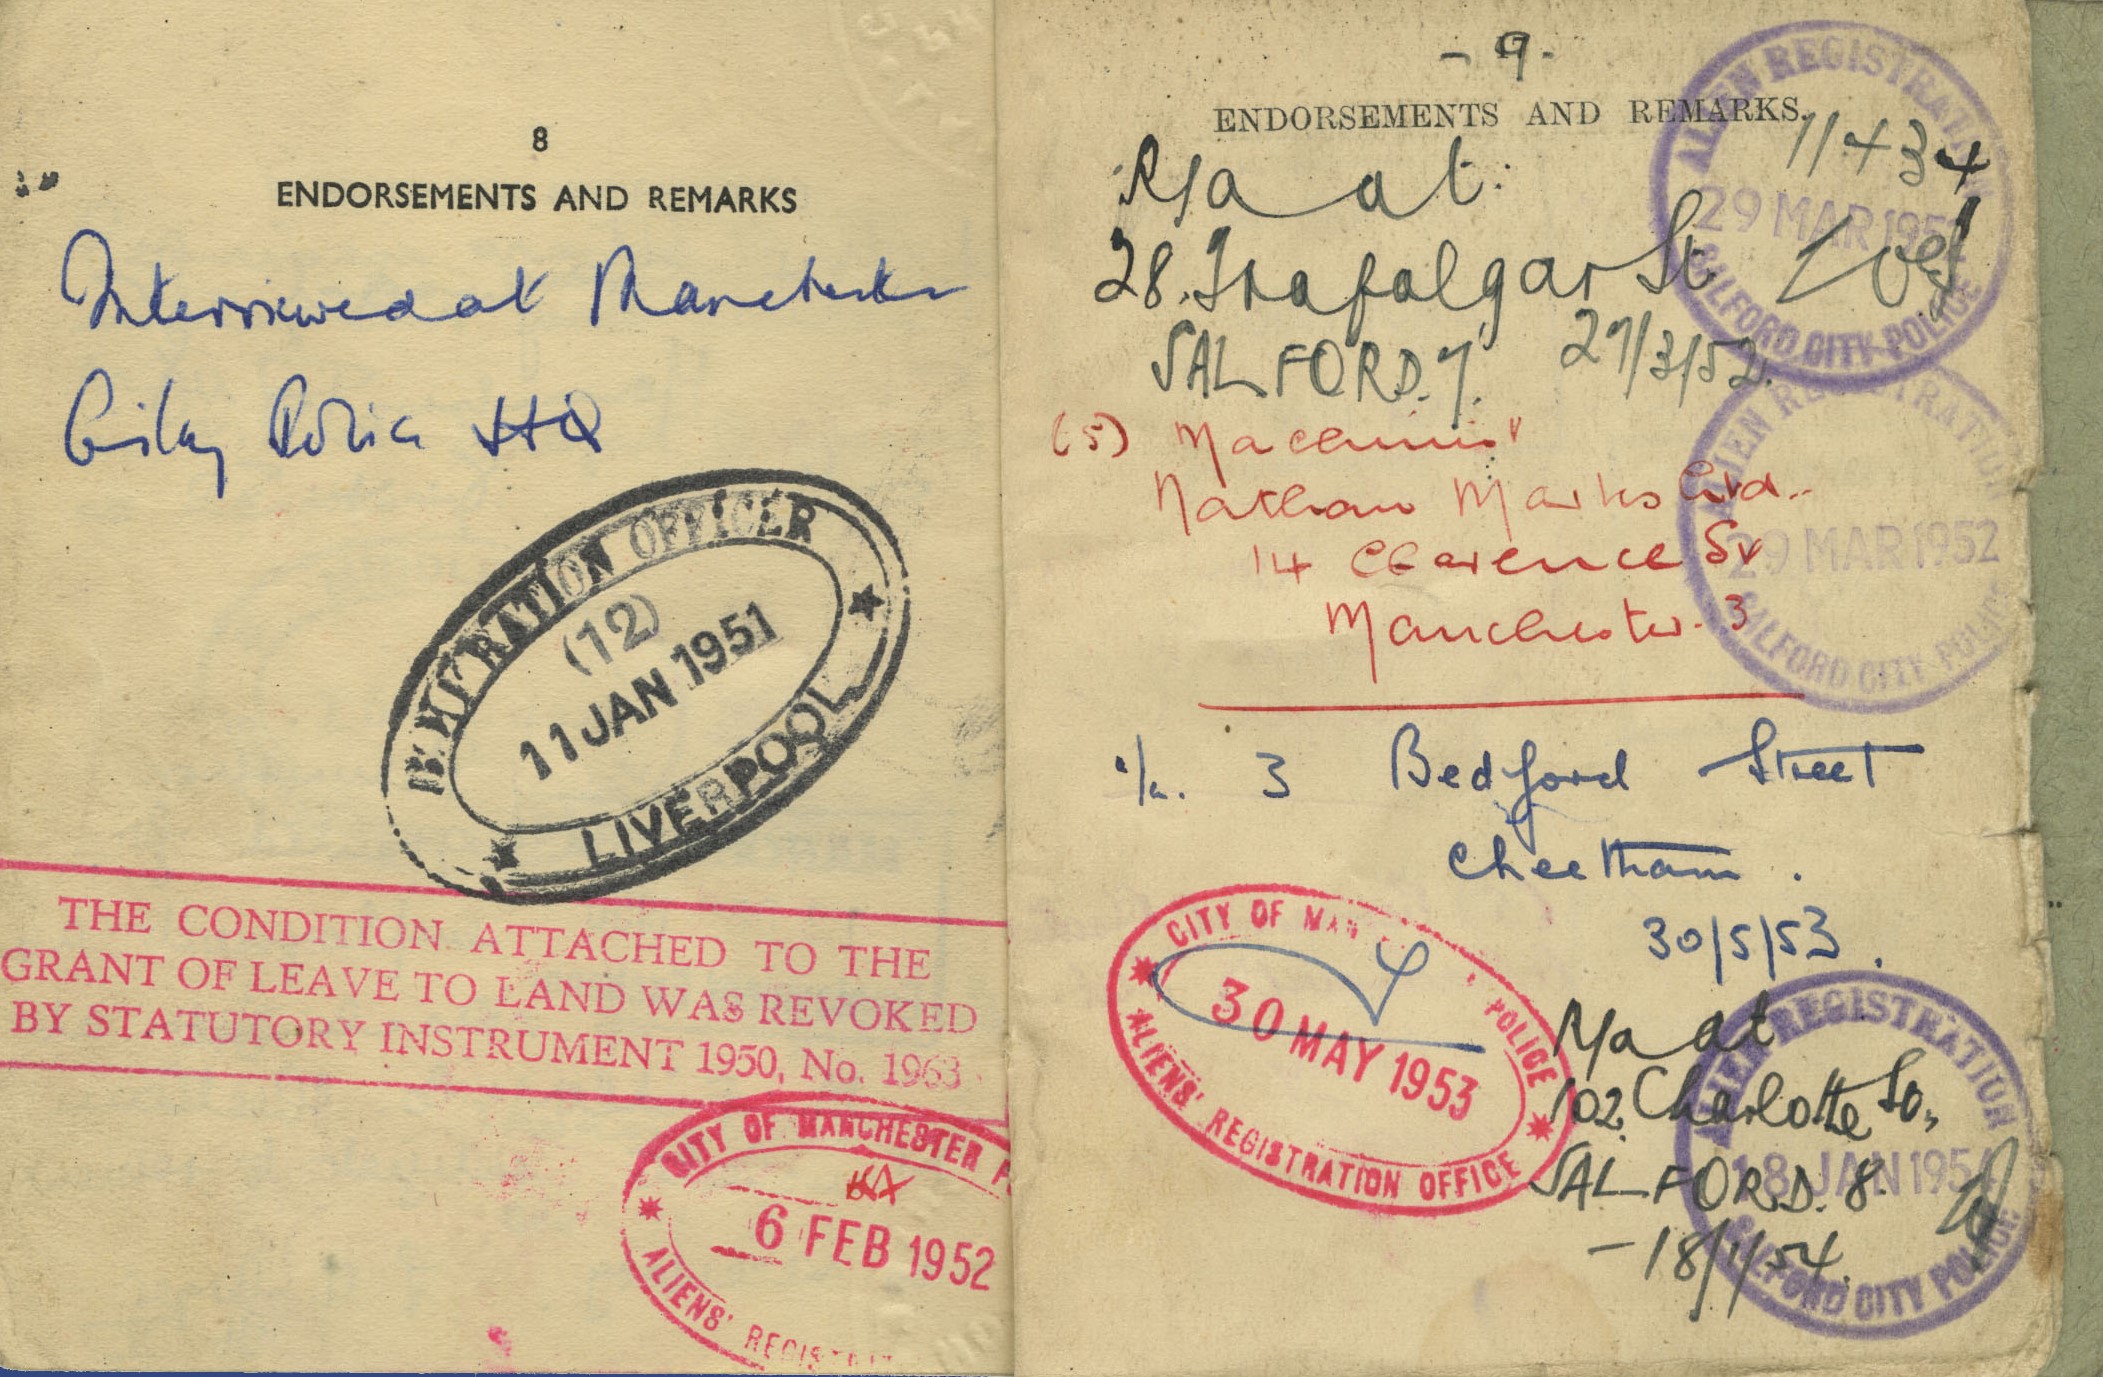 8
ENDORSEMENTS AND REMARKS
Interviewed at Manchester
City Police HQ
IMMIGRATION OFFICER
(12)
11 JAN 1951
LIVERPOOL
THE CONDITION ATTACHED TO THE
GRANT OF LEAVE TO LAND WAS REVOKED
BY STATUTORY INSTRUMENT 1950, No. 1963
CITY OF MANCHESTER P
6 FEB 1952
ALIENS' REGISTRAT
- 9 -
ENDORSEMENTS AND REMARKS.
11434
R/a at:
28. Trafalgar St
SALFORD. 7. 29/3/52.
ALIEN REGISTRATION
29 MAR 1952
SALFORD CITY POLICE
(5) Machinist
Nathan Marks Ltd..
14 Clarence St
Manchester. 3
ALIEN REGISTRATION
29 MAR 1952
SALFORD CITY POLICE
3 Bedford Street
Cheetham.
30/5/53.
CITY OF MAN POLICE
30 MAY 1953
ALIENS' REGISTRATION OFFICE
R/a at
102. Charlotte So.,
SALFORD. 8.
-18/1/54.
ALIEN REGISTRATION
18 JAN 1954
SALFORD CITY POLICE